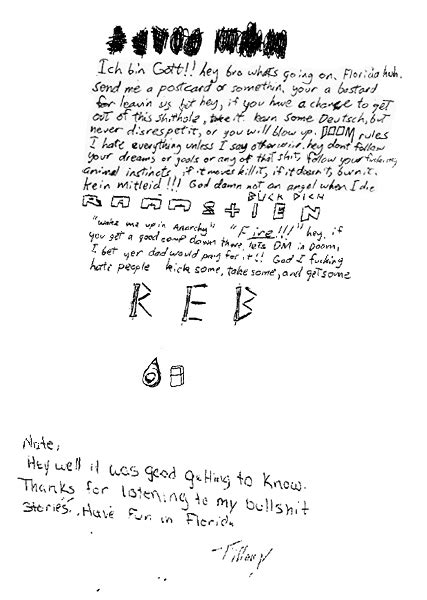 Ich bin Gott!! hey bro whats going on. Florida huh.
send me a postcard or somethin. your a bastard
for leavin us but hey, if you have a chance to get
out of this shithole, take it. learn some Deutsch, but
never disrespect it, or you will blow up. DOOM rules
I hate everything unless I say otherwise. hey dont follow
your dreams or goals or any of that shit, follow your fucking
animal instincts, if it moves kill it, if it doesn't, burn it.
kein mitleid!!! God damn not an angel when I die
BUCK DICH
RAMMSTIEN
"wake me up in Anarchy" "Fire!!!" hey, if
you get a good comp down there, lets DM in Doom,
I bet yer dad would pay for it!! God I fucking
hate people kick some, take some, and get some
REB
Note,
Hey well it was good getting to know.
Thanks for listening to my bullshit
stories. Have fun in Florida
Tiffany